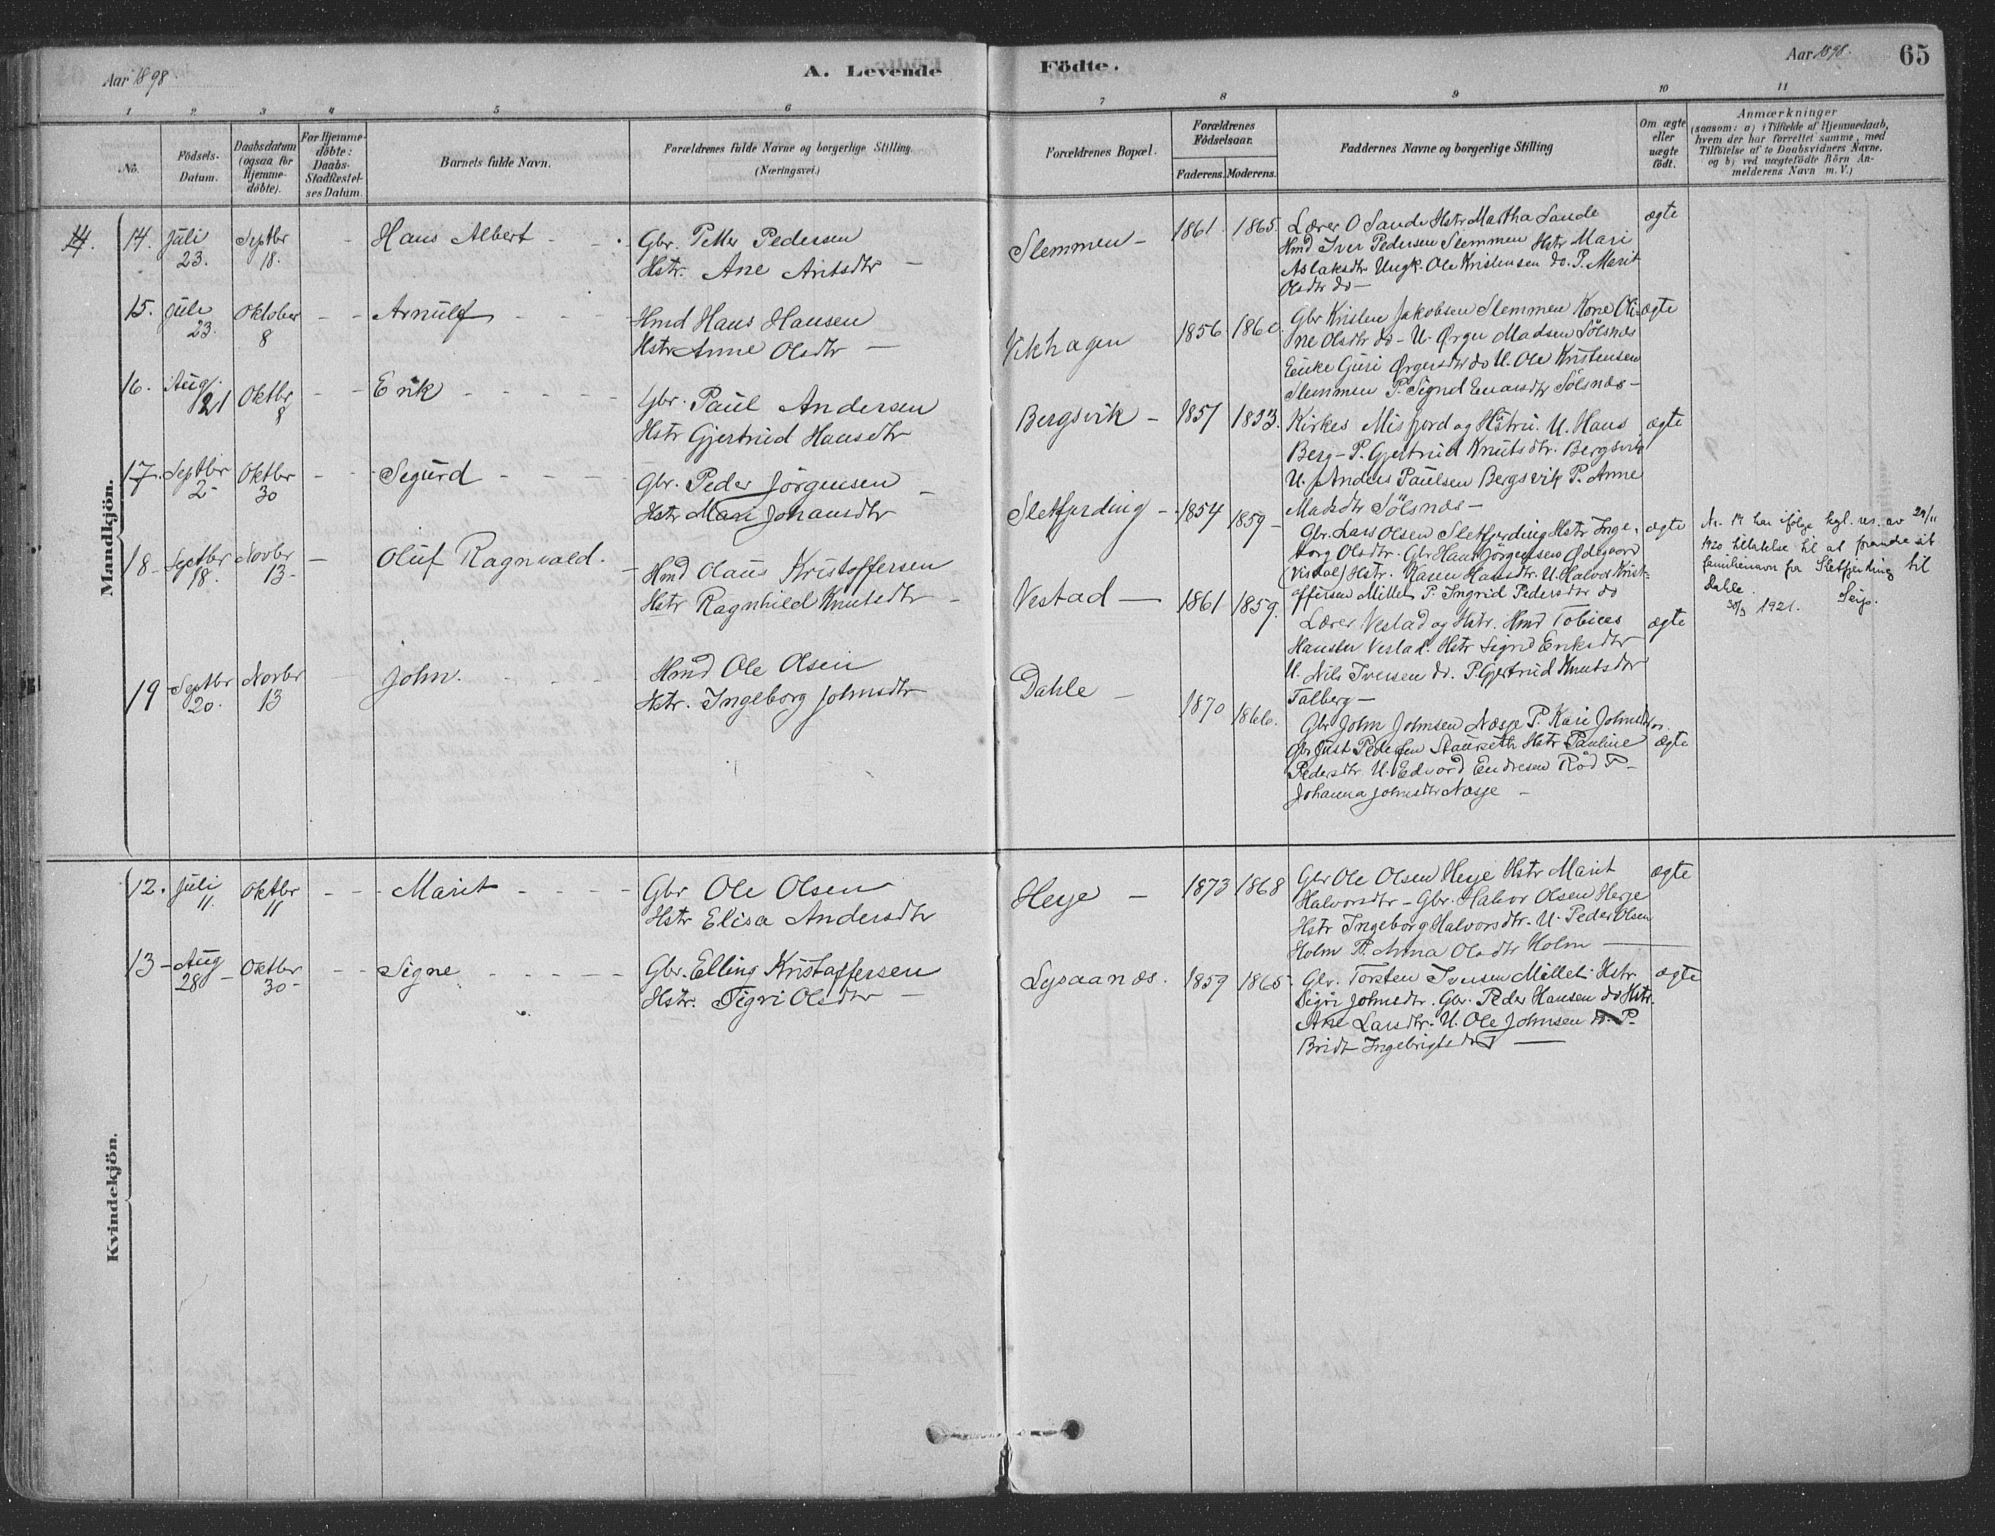 Aar 1898
A. Levende
Födte.
Aar 1898.
65
1 2 3 4 5 6 7 8 9 10 11
No.
Födsels-
Datum.
Daabsdatum
(ogsaa for
Hjemme-
döbte).
For Hjemme-
döbte:
Daabs-
Stadfæstel-
ses Datum.
Barnets fulde Navn.
Forældrenes fulde Navne og borgerlige Stilling.
(Næringsvei.)
Forældrenes Bopæl.
Forældrenes
Födselsaar.
Faderens. Moderens.
Faddernes Navne og borgerlige Stilling
Om ægte
eller
uægte
født.
Anmærkninger
(saasom: a) i Tilfælde af Hjemmedaab,
hvem der har forrettet samme, med
Tilföielse af to Daabsvidners Navne,
og b) ved uægtefödte Börn An-
melderens Navn m. V.)
Mandkjön.
14. 14. Juli
23.
Septbr
18.
Hans Albert
Gbr. Petter Pedersen
Hstr. Ane Arntsdtr
Slemmen
1861. 1865.
Lærer O Sande Hstr Martha Sande
Hmd Iver Pedersen Slemmen Hstr Mari
Aslaksdtr Ungk. Ole Kristensen do. P. Marit
Olsdtr do
ægte
15. Juli
23.
Oktober
8
Arnulf
Hmd Hans Hansen
Hstr Anne Olsdtr
Vikhagen
1856
Gbr Kristen Jakobsen Slemmen Kone Oli-
ne Olsdtr do - U. Ørgen Madsen Sølsnæs
Enke Guri Ørgersdtr do U. Ole Kristensen
Slemmen P. Signd Enarsdtr Sølsnæs
ægte
16. Aug.
21
Oktbr
8
Erik
Gbr. Paul Andersen
Hstr Gjertrud Hansdtr
Bergsvik
1857
Kirkes Misfjord og Hstru. U. Hans
Berg - P. Gjertrud Knutsdtr. Bergsvik
U. Anders Paulsen Bergsvik P. Anne
Madsdtr Sølsnæs
ægte
17. Septbr
2
Oktbr
30
Sigurd
Gbr. Peder Jörgensen
Hstr Mari Johansdtr
Sletfjerding
1854 1859
Gbr. Lars Olsen Sletfjerding Hstr. Inge-
borg Olsdtr. Gbr Hans Jörgensen Ødegaard
(Visdal) Hstr. Karen Hansdtr. U. Halvor Krist-
offersen Millet P. Ingrid Pedersdtr do
ægte
Nr. 17 har ifølge kgl. res. av 29/11
1920 tillatelse til at forandre sit
familienavn fra Sletfjerding til
Dahle.
30/3 1921. Seip.
18 Septbr
18.
Novbr
13
Oluf Ragnvald.
Hmd Olaus Kristoffersen
Hstr Ragnhild Knutsdtr
Vestad
1861 1859.
Lærer Vestad og Hstr. Hmd Tobias
Hansen Vestad. Hstr Signe Eriksdtr
U. Nils Iversen do. P. Gjertrud Knutsdtr
Talberg
ægte
19 Septbr
20.
Novbr
13
John.
Hmd Ole Olsen
Hstr. Ingeborg Johnsdtr
Dahle
1870 1866.
Gbr John Johnsen Næsje P. Kari Johnsdtr
Gbr Just Pedersen Staurseth Hstr Pauline
Pedersdtr U. Edvard Endresen Rød P
Johanna Johnsdtr Næsje
ægte
Kvindekjön.
12. Juli
11.
Oktbr
11
Marit
Gbr Ole Olsen
Hstr Elisa Andersdtr
Heje
1873 1868
Gbr Ole Olsen Heje Hstr Marit
Halvorsdtr - Gbr. Halvor Olsen Heje
Hstr Ingeborg Halvorsdtr. U. Peder Olsen
Holm P. Anna Olsdtr Holm
ægte
13 Aug
28
Oktbr
30
Signe
Gbr. Elling Kristoffersen
Hstr. Sigri Olsdtr
Lysaanæs.
1859 1865
Gbr. Torsten Iversen Millet Hstr
Sigri Johnsdtr. Gbr. Peder Hansen do Hstr.
Ane Larsdtr. U. Ole Johnsen do. P
Bridt Ingebrigtsdtr
ægte